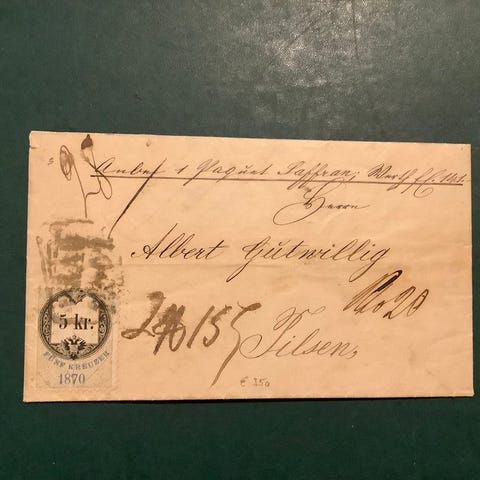 Anbei 1 Paquet Saffran; Werth fl. 141.
Herrn
Albert Gutwillig
No 20
Pilsen,
5 kr.
FÜNF KREUZER
1870
€ 350